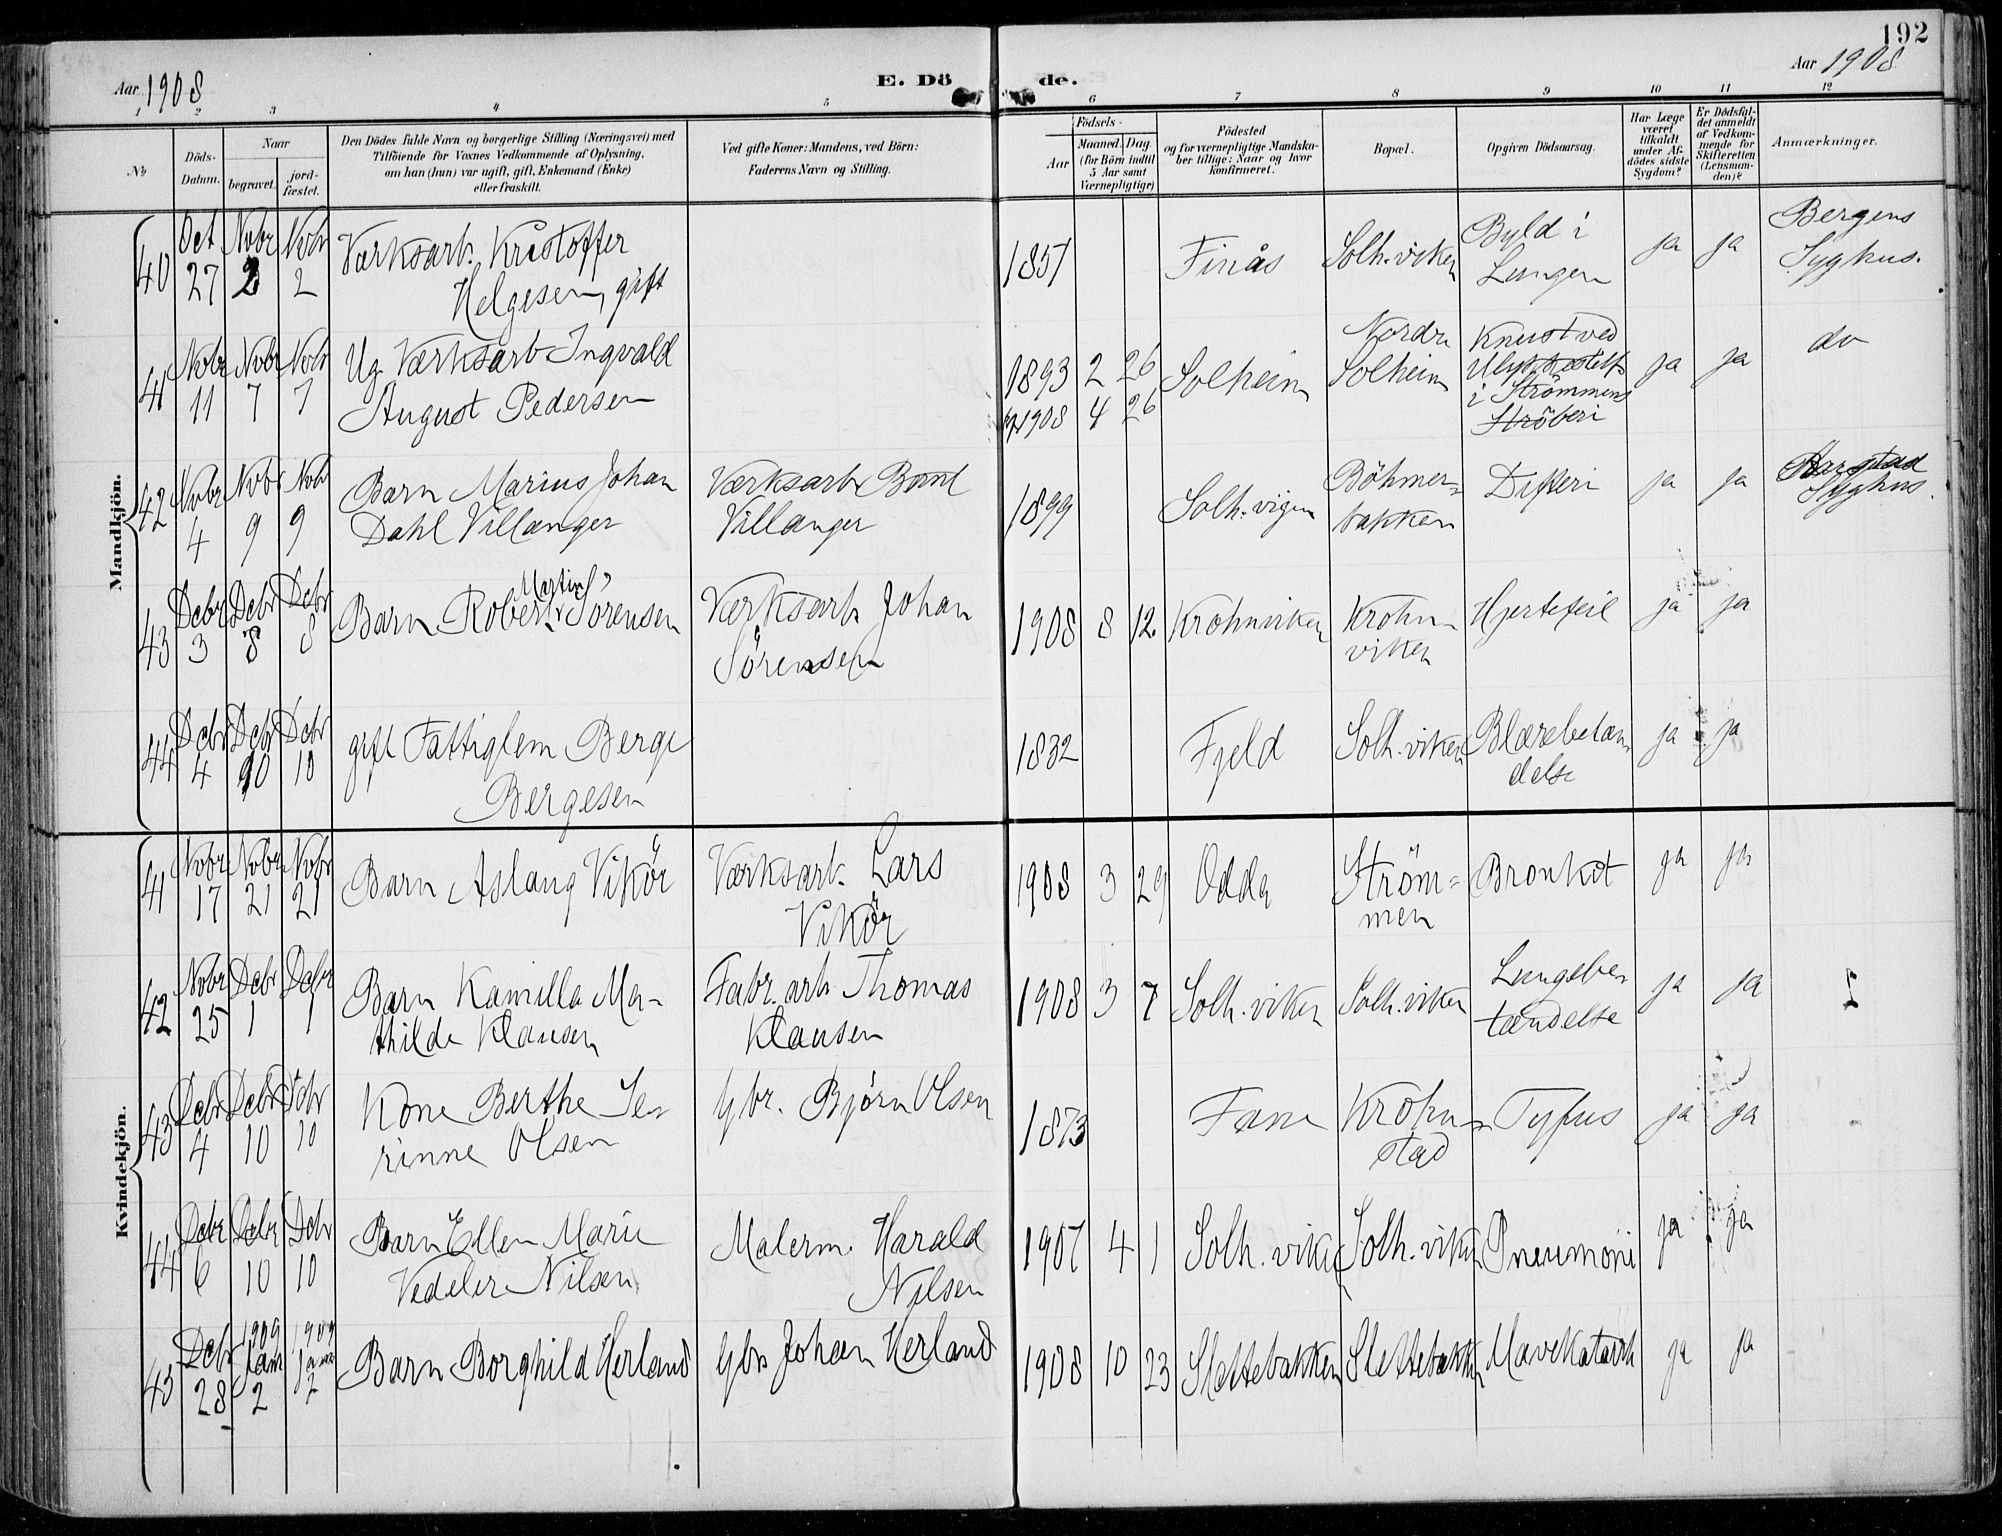 192
Aar 1908
E. Dö
de.
Aar 1908
1 2 3 4 5 6 7 8 9 10 11 12
No
Döds-
Datum.
Naar
begravet.
jord-
fæstet.
Den Dödes fulde Navn og borgerlige Stilling (Næringsvei) med
Tilföiende for Voxnes Vedkommende af Oplysning,
om han (hun) var ugift, gift, Enkemand (Enke)
eller fraskilt.
Ved gifte Koner: Mandens, ved Börn:
Faderens Navn og Stilling.
Födsels-
Aar
Maaned. Dag.
(for Börn indtil
5 Aar samt
Værnepligtige)
Födested
og for værnepligtige Mandska-
ber tillige: Naar og hvor
konfirmeret.
Bopæl.
Opgiven Dödsaarsag.
Har Læge
været
tilkaldt
under Af-
dödes sidste
Sygdom?
Er Dödsfal-
det anmeldt
af Vedkom-
mende for
Skifteretten
(Lensman-
den)?
Anmærkninger.
Mandkjön.
40
Oct
27
Nvbr
2
Nvbr
2
Værksarb. Kristoffer
Helgesen, gift
1857
Finås
Solh.viken
Byld i
Lungen
ja
ja
Bergens
Syghus.
41
Nvbr
11
Nvbr
7
Nvbr
7
Ug. Værksarb Ingvald
August Pedersen
1893 2 26
1908 4 26
Solheim
Nordre
Solheim
Knust ved
i Strömmens
Ströberi
ja
ja
do
42
Nvbr
4
Nvbr
9
Nvbr
9
Barn Marius Johan
Dahl Villanger
Værksarb
Villanger
1899
Solh.vigen
Böhmer-
bakken
Difteri
ja
ja
Syghus.
43
Dcbr
3
Dcbr
8
Dcbr
8
Martin
Barn Robert Sörensen
Værksarb. Johan
Sörensen
1908 8 12.
Krohnviken
Krohn-
viken
Hjertefeil
ja
ja
44
Dcbr
4
Dcbr
10
Dcbr
10
gift Fattiglem Berge
Bergesen
1832
Fjeld
Solh.viken
Blærebetæn-
delse
ja
ja
Kvindekjön.
41
Nvbr
17
Nvbr
21
Nvbr
21
Barn Aslaug Vikör
Værksarb. Lars
Vikör
1908 3 29
Odda
Ström-
men
Bronkit
ja
ja
42
Nvbr
25
Dcbr
1
Dcbr
1
Barn Kamilla Ma-
thilde Klausen
Fabr.arb. Thomas
Klausen
1908 3 7
Solh.viken
Solh.viken
Lungebe-
tændelse
ja
ja
43
Dcbr
4
Dcbr
10
Dcbr
10
Kone Berthe Se-
rinne Olsen
Gbr. Björn Olsen
1873
Fane
Krohn-
stad
Tyfus
ja
ja
44
Dcbr
6
Dcbr
10
Dcbr
10
Barn Ellen Marie
Vedeler Nilsen
Malerm. Harald
Nilsen
1907 4 1
Solh.viken
Solh.viken
Pneumoni
ja
ja
45
Dcbr
28
1909
Jan
2
1909
Jan
2
Barn Borghild Herland
Gbr Johan Herland
1908 10 23
Slettebakken
Slettebakken
Mavekatarrh
ja
ja